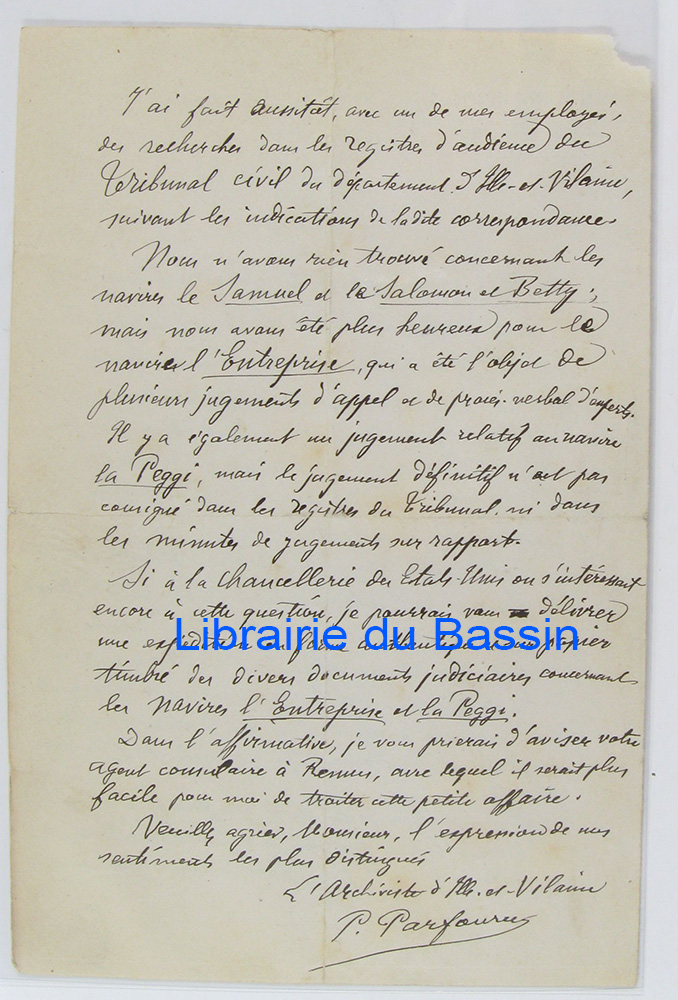 J'ai fait aussitôt, avec un de mes employés,
des recherches dans les registres d'audience du
Tribunal civil du département d'Ille-et-Vilaine,
suivant les indications de ladite correspondance.
Nous n'avons rien trouvé concernant les
navires le Samuel et le Salomon et Betty;
mais nous avons été plus heureux pour le
navire l'Entreprise, qui a été l'objet de
plusieurs jugements d'appel et de procès-verbal d'experts.
Il y a également un jugement relatif au navire
la Peggi, mais le jugement définitif n'est pas
consigné dans les registres du Tribunal, ni dans
les minutes de jugements sur rapport.
Si à la Chancellerie des Etats-Unis on s'intéressait
encore à cette question, je pourrais vous délivrer
une expédition en forme authentique sur papier
Librairie du Bassin
timbré des divers documents judiciaires concernant
les navires l'Entreprise et la Peggi.
Dans l'affirmative, je vous prierais d'aviser votre
agent consulaire à Rennes, avec lequel il serait plus
facile pour moi de traiter cette petite affaire.
Veuillez agréer, Monsieur, l'expression de mes
sentiments les plus distingués
L'Archiviste d'Ille-et-Vilaine
P. Parfouru